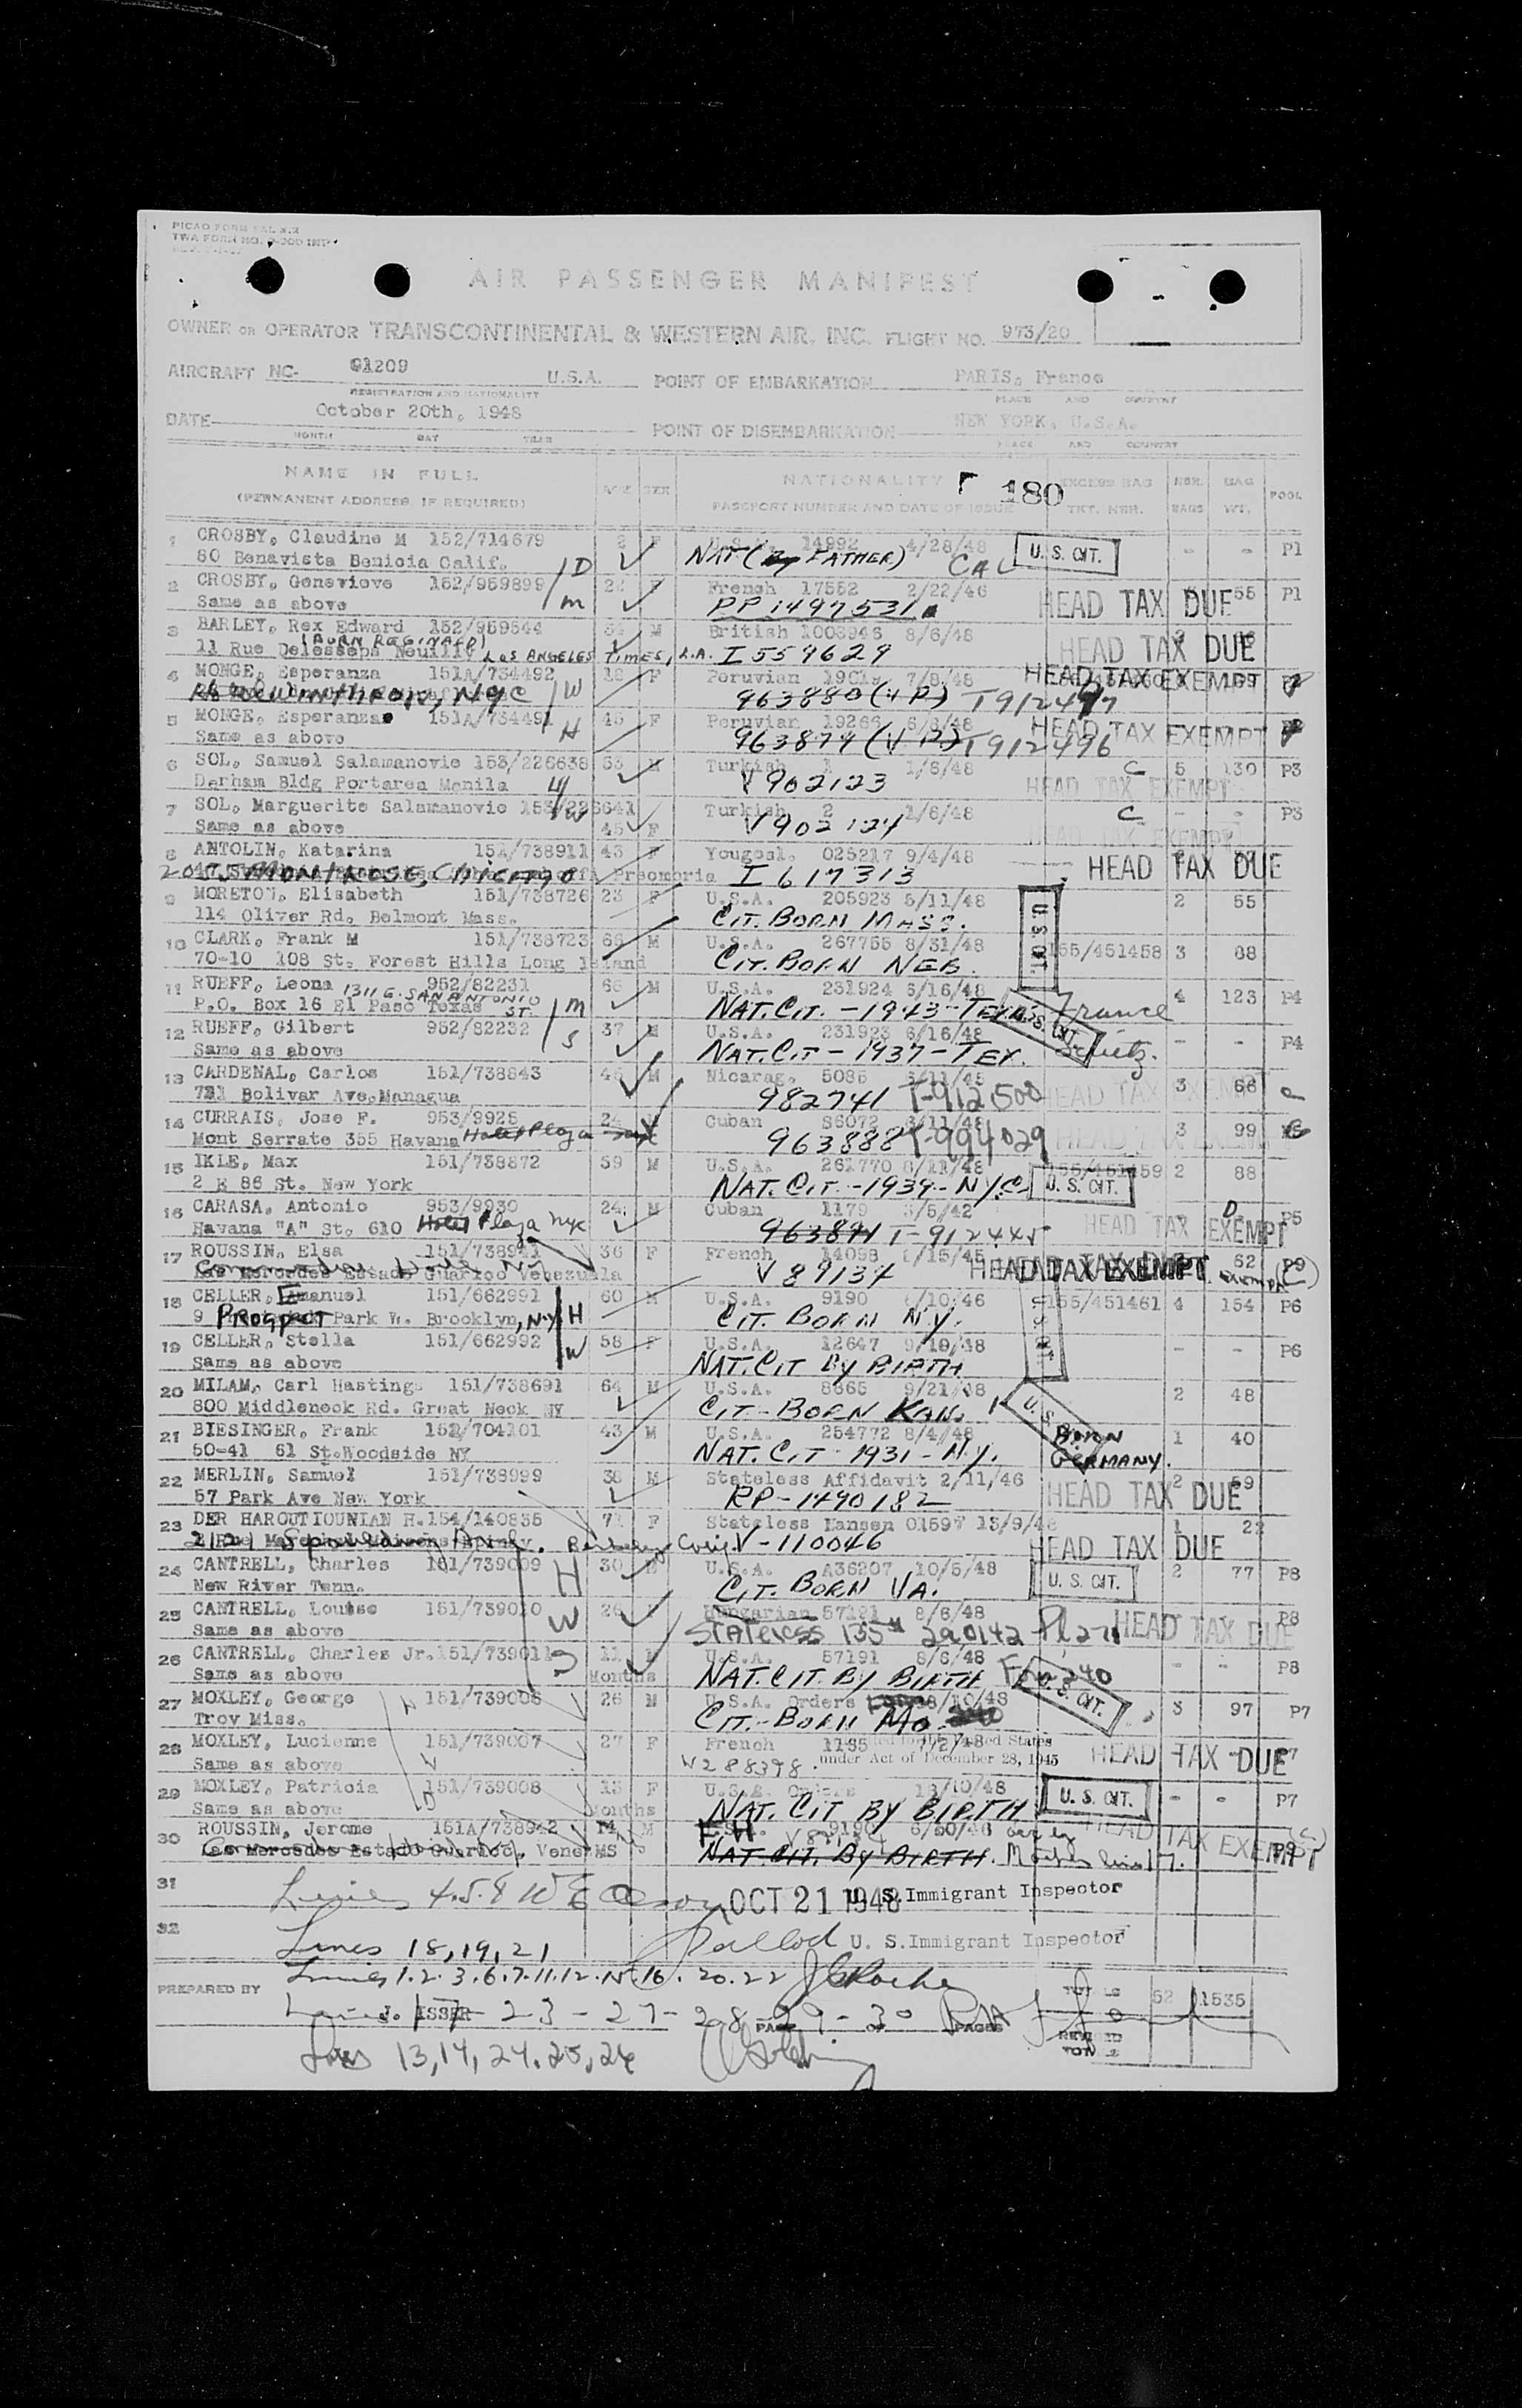 PICAO FORM FAL 2.2
AIR PASSENGER MANIFEST
OWNER OR OPERATOR TRANSCONTINENTAL & WESTERN AIR, INC. FLIGHT NO. 973/20
AIRCRAFT NC- 91209 U.S.A. POINT OF EMBARKATION PARIS, France
REGISTRATION AND NATIONALITY PLACE AND COUNTRY
DATE October 20th, 1948 POINT OF DISEMBARKATION NEW YORK, U.S.A.
MONTH DAY YEAR PLACE AND COUNTRY
NAME IN FULL AGE SEX NATIONALITY 180 EXCESS BAG NBR. BAG POOL
(PERMANENT ADDRESS, IF REQUIRED) PASSPORT NUMBER AND DATE OF ISSUE TKT. NBR. BAGS WT.
1 CROSBY, Claudine M 152/714679 2 F U.S.A. 14992 4/28/48 U. S. CIT. - - P1
80 Benavista Benicia Calif. D NAT. (By FATHER) CAL
2 CROSBY, Genevieve 152/959899 22 F French 17552 2/22/46 HEAD TAX DUE 55 P1
Same as above m PP 1497531
3 BARLEY, Rex Edward 152/959544 M British 1003946 8/6/48 HEAD TAX DUE
(BORN REGINALD)
11 Rue Delesseps Neuilly LOS ANGELES TIMES, L.A. I 559629
4 MONGE, Esperanza 151A/734492 12 F Peruvian 19019 7/8/48 HEAD TAX EXEMPT
NYC W 963880 (V P) T912497
5 MONGE, Esperanza 151A/734491 45 F Peruvian 19266 6/6/48 HEAD TAX EXEMPT
Same as above H 963879 (V P) T912496
6 SOL, Samuel Salamanovic 153/226638 53 M Turkish 1 1/6/48 C 5 130 P3
Darham Bldg Portarea Manila H V902123 HEAD TAX EXEMPT
7 SOL, Marguerite Salamanovic 153/226641 Turkish 2 1/6/48 C - - P3
Same as above W 45 F V902124 HEAD TAX EXEMPT
8 ANTOLIN, Katarina 151/738911 43 F Yougosl. 025217 9/4/48 HEAD TAX DUE
MONTROSE, CHICAGO I 617313
9 MORETON, Elisabeth 151/738726 23 F U.S.A. 205923 5/11/48 U. S. CIT. 2 55
114 Oliver Rd. Belmont Mass. CIT. BORN MASS.
10 CLARK, Frank M 151/738723 66 M U.S.A. 267755 8/31/48 155/451458 3 88
70-10 108 St. Forest Hills Long Island CIT. BORN NEB.
11 RUEFF, Leona 952/82231 66 M U.S.A. 231924 6/16/48 France 4 123 P4
1311 E. SAN ANTONIO ST.
P.O. Box 16 El Paso Texas m NAT. CIT. - 1943 - TEX. U. S. CIT.
12 RUEFF, Gilbert 952/82232 37 M U.S.A. 231923 6/16/48 - - P4
Same as above S NAT. CIT - 1937 - TEX.
13 CARDENAL, Carlos 151/738843 45 M Nicarag. 5085 3 66
721 Bolivar Ave. Managua 982741 T-912500 HEAD TAX EXEMPT
14 CURRAIS, Jose F. 953/9925 Cuban 36072 3 99
Mont Serrate 355 Havana Hotel Plaza NYC 963888 T-994029 HEAD TAX EXEMPT
15 IKLE, Max 151/738872 59 M U.S.A. 261770 155/451459 2 88
2 E 86 St. New York NAT. CIT. - 1939 - N.Y.C. U. S. CIT.
16 CARASA, Antonio 953/9930 24 M Cuban 1179 3/5/42 D P5
Havana "A" St. 610 Hotel Plaza NYC 963891 T-912445 HEAD TAX EXEMPT
17 ROUSSIN, Elsa 151/738941 36 F French 14098 HEAD TAX EXEMPT 62 P9
Las Mercedes Estado Guarico Venezuela V 89134
18 CELLER, Emanuel 151/662991 60 M U.S.A. 9190 155/451461 4 154 P6
9 PROSPECT Park W. Brooklyn, N.Y. H CIT. BORN N.Y.
19 CELLER, Stella 151/662992 58 F U.S.A. 12647 - - P6
Same as above W NAT. CIT BY BIRTH
20 MILAM, Carl Hastings 151/738691 64 M U.S.A. 8865 9/21/48 2 48
800 Middleneck Rd. Great Neck NY CIT - BORN KAN.
21 BIESINGER, Frank 152/704101 43 M U.S.A. 254772 8/4/48 BORN 1 40
50-41 61 St. Woodside NY NAT. CIT - 1931 - N.Y. GERMANY.
22 MERLIN, Samuel 151/738999 38 M Stateless Affidavit 2/11/46 2 59
57 Park Ave New York RP-1490182 HEAD TAX DUE
23 DER HAROUTIOUNIAN H. 154/140835 F Stateless Nansen 13/9/48 1 22
V-110046 HEAD TAX DUE
24 CANTRELL, Charles 151/739009 H 30 M U.S.A. A36207 10/5/48 U. S. CIT. 2 77 P8
New River Tenn. CIT. BORN VA.
25 CANTRELL, Louise 151/739010 W 26 F Hungarian 57191 8/6/48 P8
Same as above STATELESS HEAD TAX DUE
26 CANTRELL, Charles Jr. 151/739011 S 11 U.S.A. 57191 8/6/48 - - P8
Same as above Months NAT. CIT. BY BIRTH U. S. CIT.
27 MOXLEY, George 151/739006 26 M U.S.A. Orders 3 97 P7
Troy Miss. CIT. - BORN MO.
28 MOXLEY, Lucienne 151/739007 27 F French ted to the United States
Same as above W W288398. under Act of December 28, 1945 HEAD TAX DUE
29 MOXLEY, Patricia 151/739008 13 F U.S.A. Orders 13/10/48 U. S. CIT. - - P7
Same as above D Months NAT. CIT BY BIRTH
30 ROUSSIN, Jerome 151A/738942 14 M HEAD TAX EXEMPT P9
Las Mercedes Estado Guarico, Vene MS NAT. CIT. BY BIRTH.
31 OCT 21 1948 U. S. Immigrant Inspector
32 Lines 18, 19, 21 U. S. Immigrant Inspector
Lines 1.2.3.6.7.11.12.15.16.20.22
PREPARED BY TOTALS 52 1535
J. ISSER 17-23-27-28-29-30 PAGE OF PAGES
Lines 13, 14, 24, 25, 26